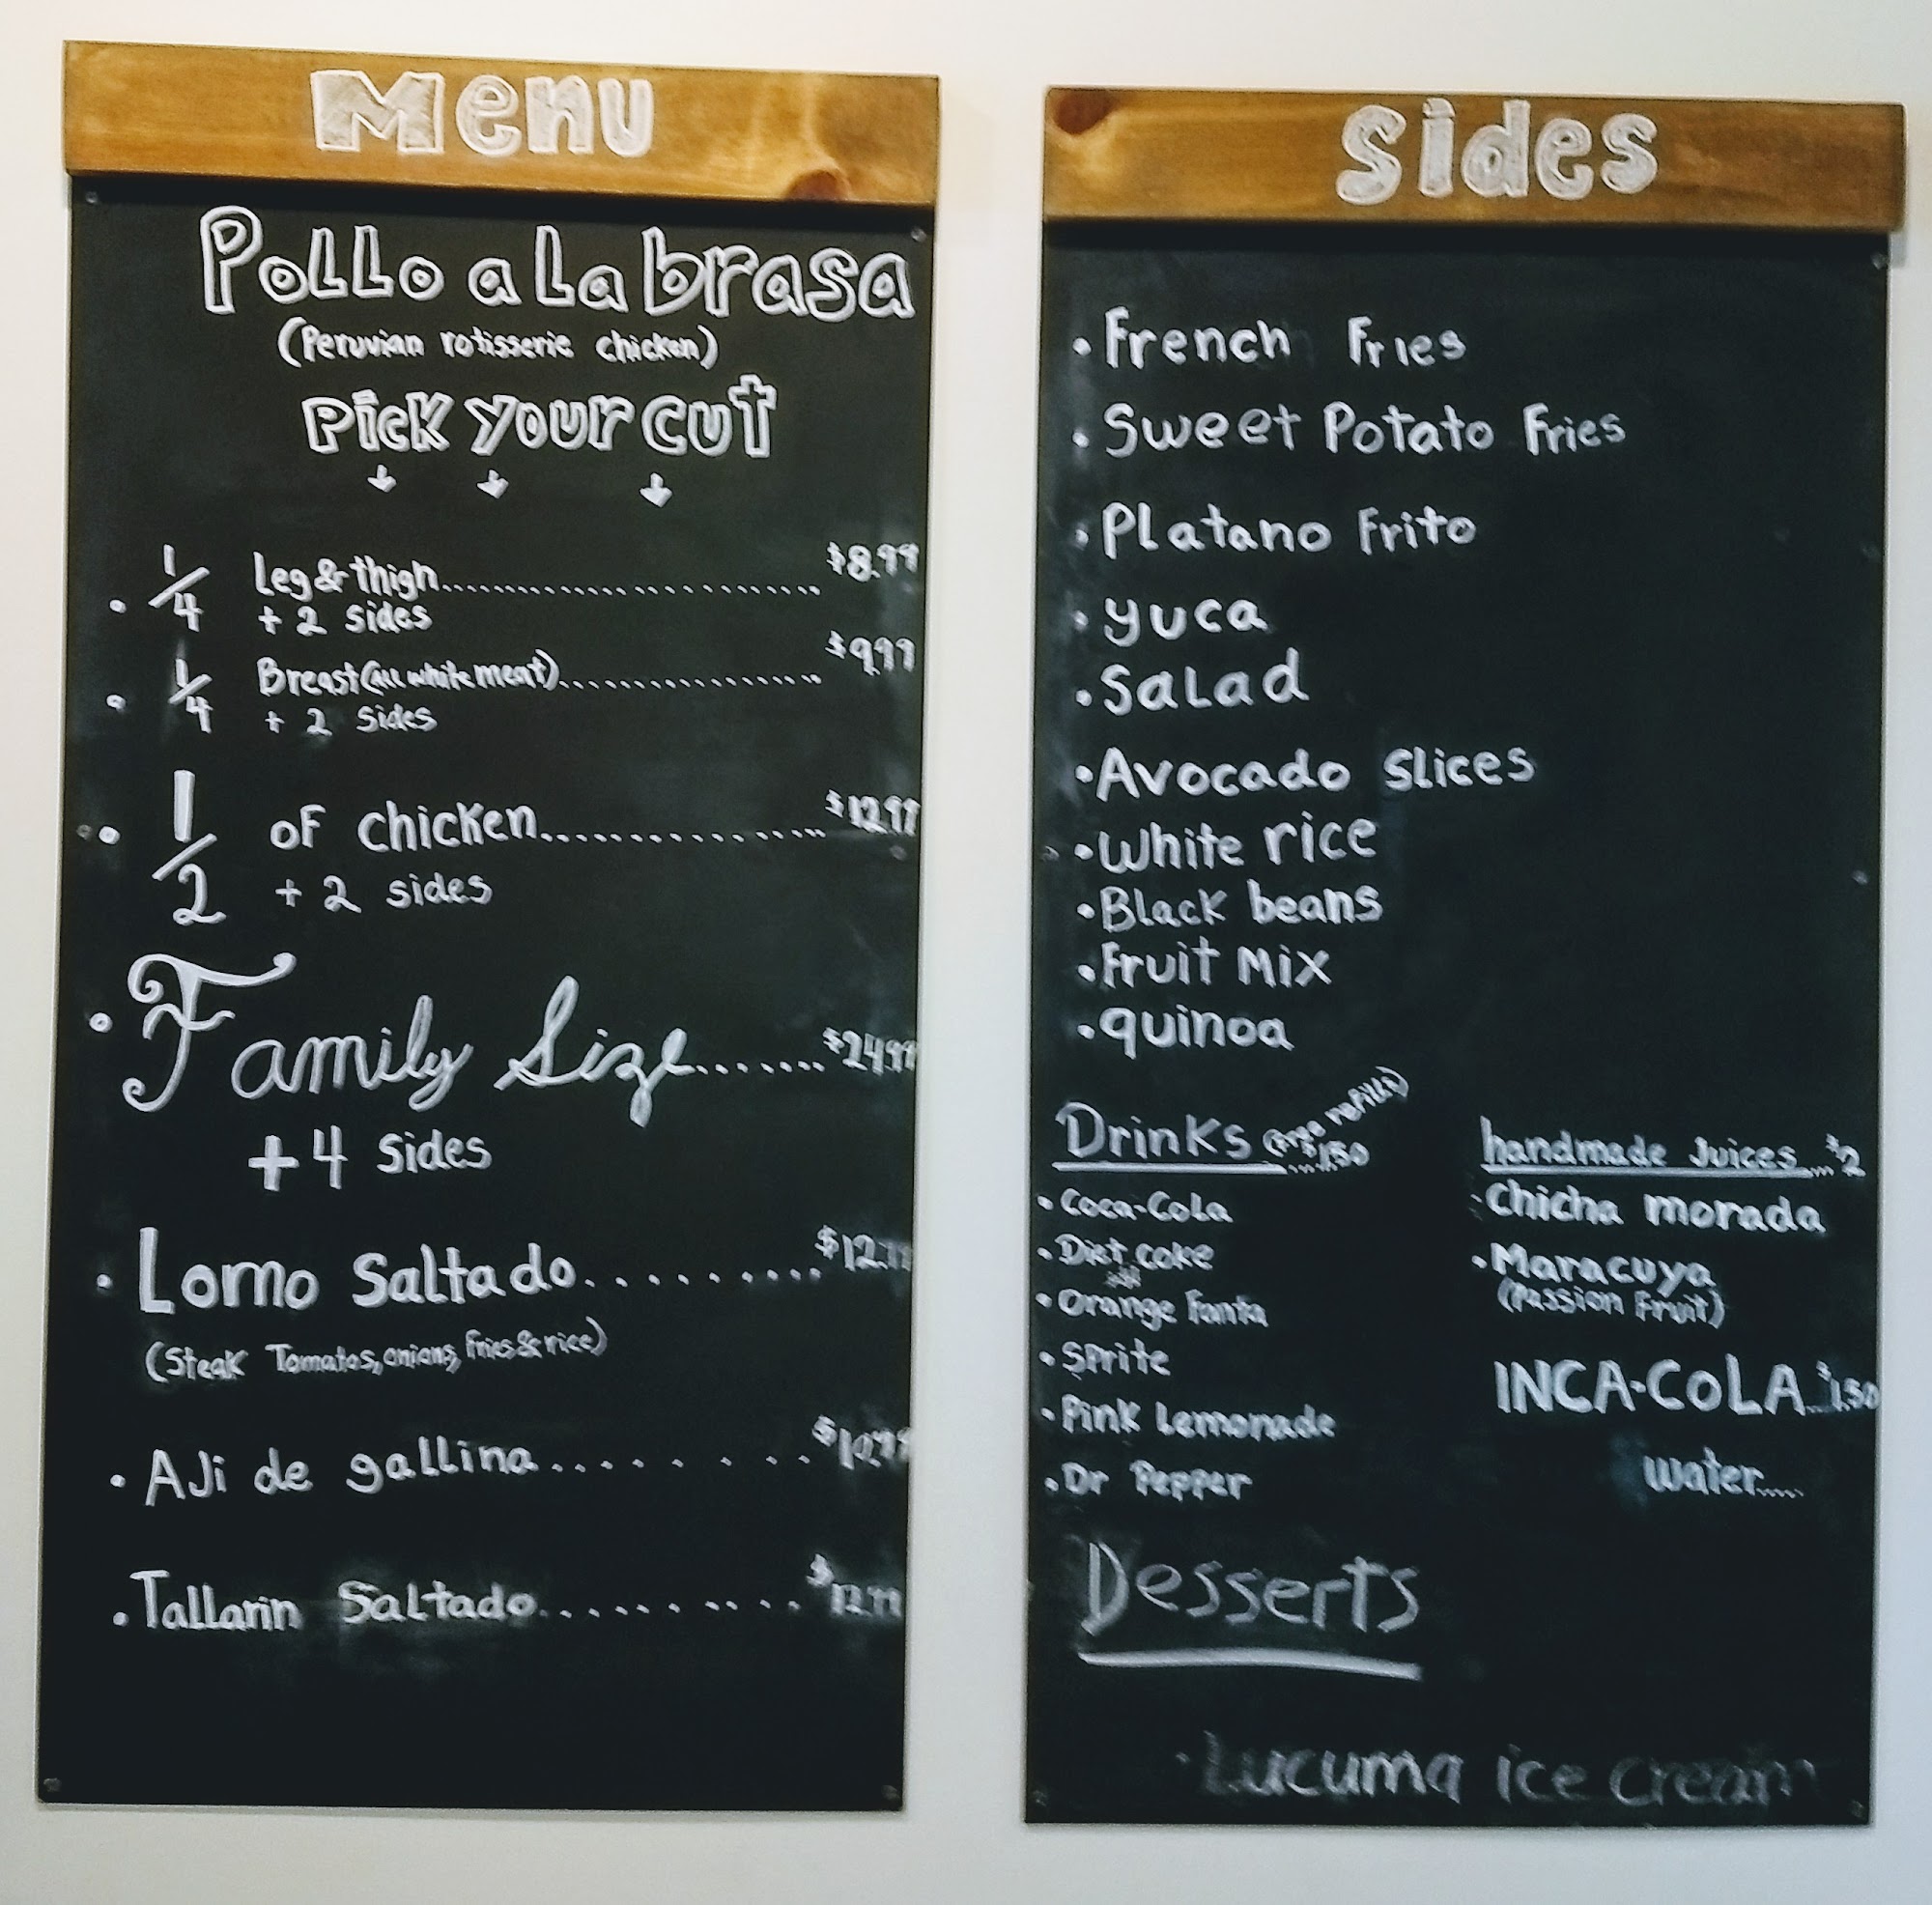 Menu
Pollo a la brasa
(Peruvian rotisserie chicken)
Pick your cut
1/4 Leg & thigh.......................... $8.99
+ 2 sides
1/4 Breast (all white meat)................. $9.99
+ 2 sides
1/2 of chicken.................. $12.99
+ 2 sides
Family Size....... $24.99
+4 sides
Lomo Saltado.......... $12.99
(Steak Tomatos, onions, fries & rice)
Aji de gallina......... $10.99
Tallarin Saltado.......... $12.99
Sides
French Fries
Sweet Potato Fries
Platano Frito
yuca
Salad
Avocado slices
White rice
Black beans
Fruit Mix
quinoa
Drinks (free refills)
.....$1.50
Coca-Cola
Diet coke
Orange Fanta
Sprite
Pink Lemonade
Dr Pepper
handmade Juices....$2
Chicha morada
Maracuya
(Passion Fruit)
INCA-COLA...$1.50
water.....
Desserts
Lucuma ice cream